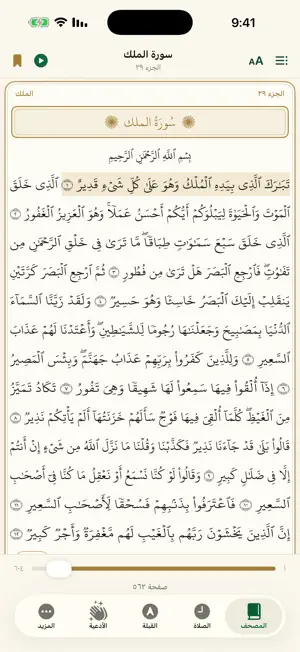 9:41
سورة الملك
الجزء ٢٩
AA
الجزء ٢٩
الملك
سُورَةُ الملك
بِسْمِ ٱللَّهِ ٱلرَّحْمَٰنِ ٱلرَّحِيمِ
تَبَٰرَكَ ٱلَّذِى بِيَدِهِ ٱلْمُلْكُ وَهُوَ عَلَىٰ كُلِّ شَىْءٍ قَدِيرٌ ١ ٱلَّذِى خَلَقَ
ٱلْمَوْتَ وَٱلْحَيَوٰةَ لِيَبْلُوَكُمْ أَيُّكُمْ أَحْسَنُ عَمَلًا ۚ وَهُوَ ٱلْعَزِيزُ ٱلْغَفُورُ ٢
ٱلَّذِى خَلَقَ سَبْعَ سَمَٰوَٰتٍ طِبَاقًا ۖ مَّا تَرَىٰ فِى خَلْقِ ٱلرَّحْمَٰنِ مِن
تَفَٰوُتٍ ۖ فَٱرْجِعِ ٱلْبَصَرَ هَلْ تَرَىٰ مِن فُطُورٍ ٣ ثُمَّ ٱرْجِعِ ٱلْبَصَرَ كَرَّتَيْنِ
يَنقَلِبْ إِلَيْكَ ٱلْبَصَرُ خَاسِئًا وَهُوَ حَسِيرٌ ٤ وَلَقَدْ زَيَّنَّا ٱلسَّمَآءَ
ٱلدُّنْيَا بِمَصَٰبِيحَ وَجَعَلْنَٰهَا رُجُومًا لِّلشَّيَٰطِينِ ۖ وَأَعْتَدْنَا لَهُمْ عَذَابَ
ٱلسَّعِيرِ ٥ وَلِلَّذِينَ كَفَرُوا۟ بِرَبِّهِمْ عَذَابُ جَهَنَّمَ ۖ وَبِئْسَ ٱلْمَصِيرُ
٦ إِذَآ أُلْقُوا۟ فِيهَا سَمِعُوا۟ لَهَا شَهِيقًا وَهِىَ تَفُورُ ٧ تَكَادُ تَمَيَّزُ
مِنَ ٱلْغَيْظِ ۖ كُلَّمَآ أُلْقِىَ فِيهَا فَوْجٌ سَأَلَهُمْ خَزَنَتُهَآ أَلَمْ يَأْتِكُمْ نَذِيرٌ ٨
قَالُوا۟ بَلَىٰ قَدْ جَآءَنَا نَذِيرٌ فَكَذَّبْنَا وَقُلْنَا مَا نَزَّلَ ٱللَّهُ مِن شَىْءٍ إِنْ أَنتُمْ
إِلَّا فِى ضَلَٰلٍ كَبِيرٍ ٩ وَقَالُوا۟ لَوْ كُنَّا نَسْمَعُ أَوْ نَعْقِلُ مَا كُنَّا فِىٓ أَصْحَٰبِ
ٱلسَّعِيرِ ١٠ فَٱعْتَرَفُوا۟ بِذَنۢبِهِمْ فَسُحْقًا لِّأَصْحَٰبِ ٱلسَّعِيرِ ١١
إِنَّ ٱلَّذِينَ يَخْشَوْنَ رَبَّهُم بِٱلْغَيْبِ لَهُم مَّغْفِرَةٌ وَأَجْرٌ كَبِيرٌ ١٢
١
٦٠٤
صفحة ٥٦٢
المصحف
الصلاة
القبلة
الأدعية
المزيد